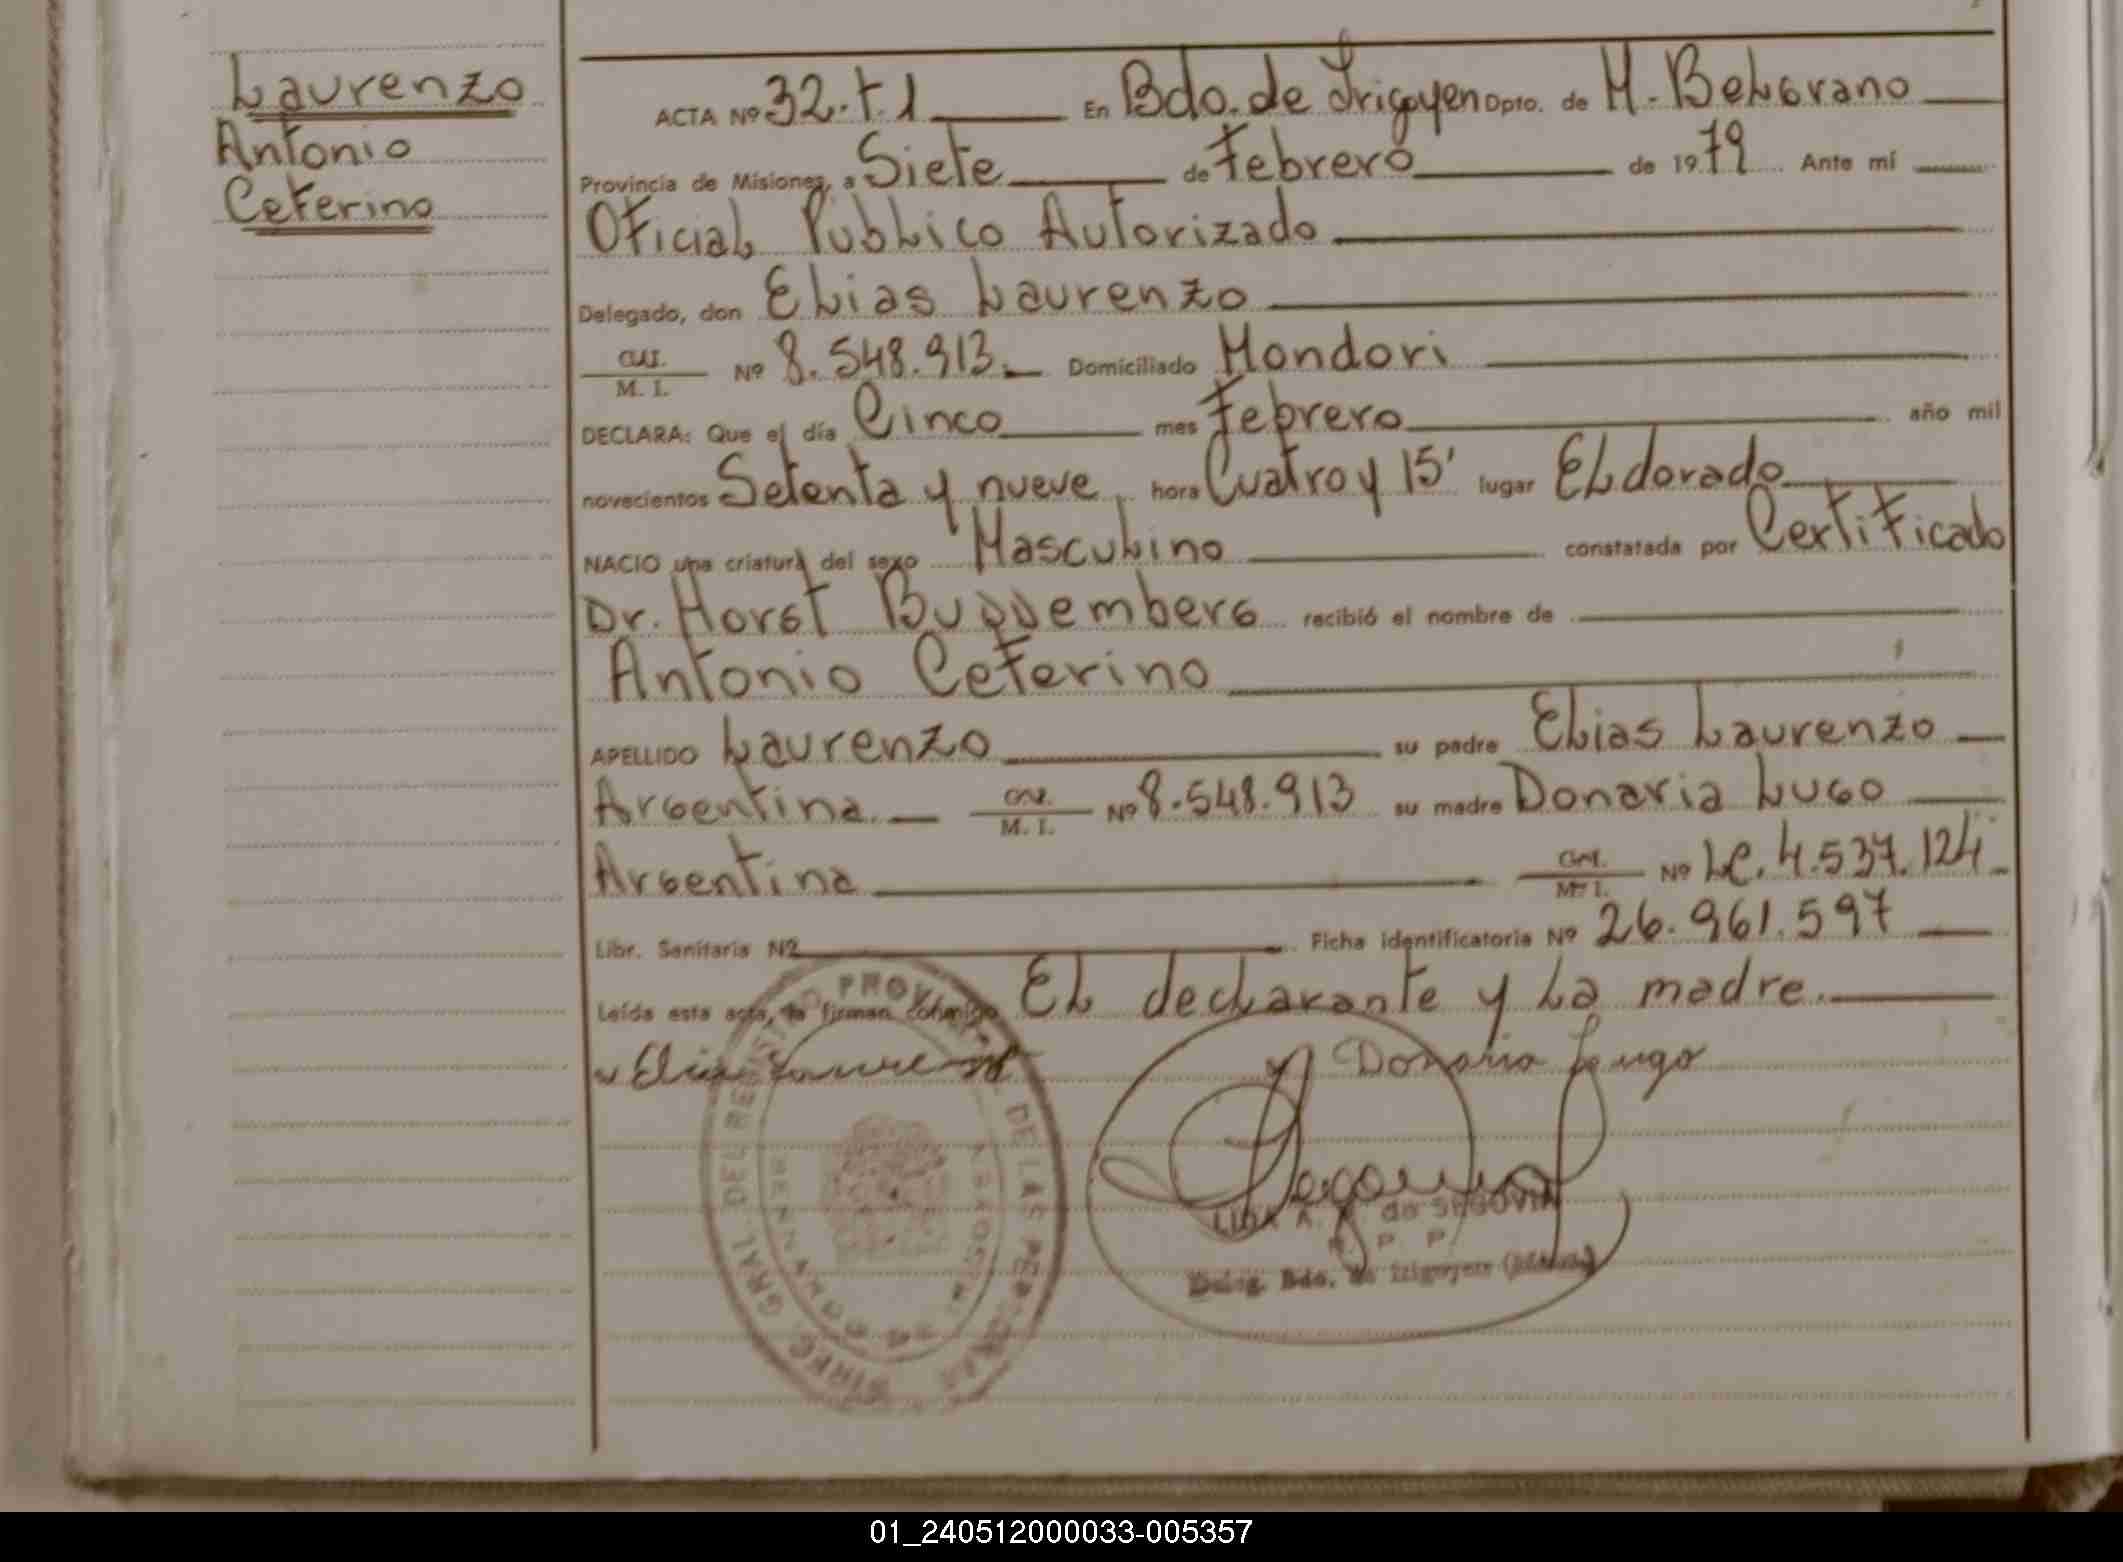 Laurenzo
Antonio
Ceferino
ACTA Nº 32.t.1 En Bdo. de Irigoyen Dpto. de M. Belgrano
Provincia de Misiones, a Siete de Febrero de 1979 Ante mí
Oficial Público Autorizado
Delegado, don Elias Laurenzo
M. I. Nº 8.548.913. Domiciliado Mondori
DECLARA: Que el día Cinco mes Febrero año mil
novecientos Setenta y nueve hora Cuatro y 15' lugar Eldorado
NACIO una criatura del sexo Masculino constatada por Certificado
Dr. Horst recibió el nombre de
Antonio Ceferino
APELLIDO Laurenzo su padre Elias Laurenzo
Argentina. M. I. Nº 8.548.913 su madre Donaria Lugo
Argentina M. I. Nº LC. 4.537.124
Libr. Sanitaria Nº Ficha identificatoria Nº 26.961.597
Leída esta acta, la firman conmigo El declarante y la madre.
Elias Laurenzo Donaria Lugo
DIREC. GRAL. DEL REGISTRO PROVINCIAL DE LAS PERSONAS
LIDA A. de SEGOVIA
Deleg. Bdo. de Irigoyen
01_240512000033-005357